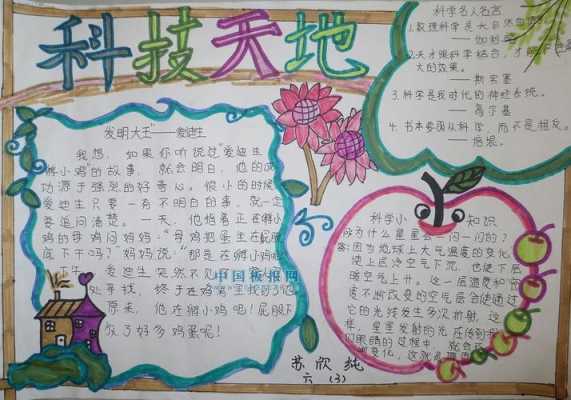 科技天地
发明大王"——爱迪生
我想，如果你听说过"爱迪生
孵小鸡"的故事，就会明白，他的成
功源于强烈的好奇心。很小的时候
爱迪生只要一有不明白的事，就一定
要追问清楚。一天，他指着正在孵小
鸡的母鸡问妈妈："母鸡把蛋坐在屁股
底下干吗？"妈妈说："那是在孵小鸡
爱迪生突然不见了
处寻找，终于在鸡窝里找到了他
原来，他在孵小鸡吧！屁股下
放了好多鸡蛋呢！
中国板报网
科学名人名言
1.数理科学是大自然
——伽利略
2.天才跟科学结合，才能
大的效果。
——斯宾塞
3.科学是我时代的神经系统。
——高尔基
4.书本要随从科学，而不是
——培根
科学小知识
为什么星星会一闪一闪的？
答:因为地球上大气温度的变化
使上层冷空气下沉，也使下层
暖空气上升。这一层温度和密
度不断改变的空气层会使通过
它的光线发生多次折射，这
样，星星发射的光在传到
们眼睛的过程中，就会
变化，这就
苏欣纯
六（3）